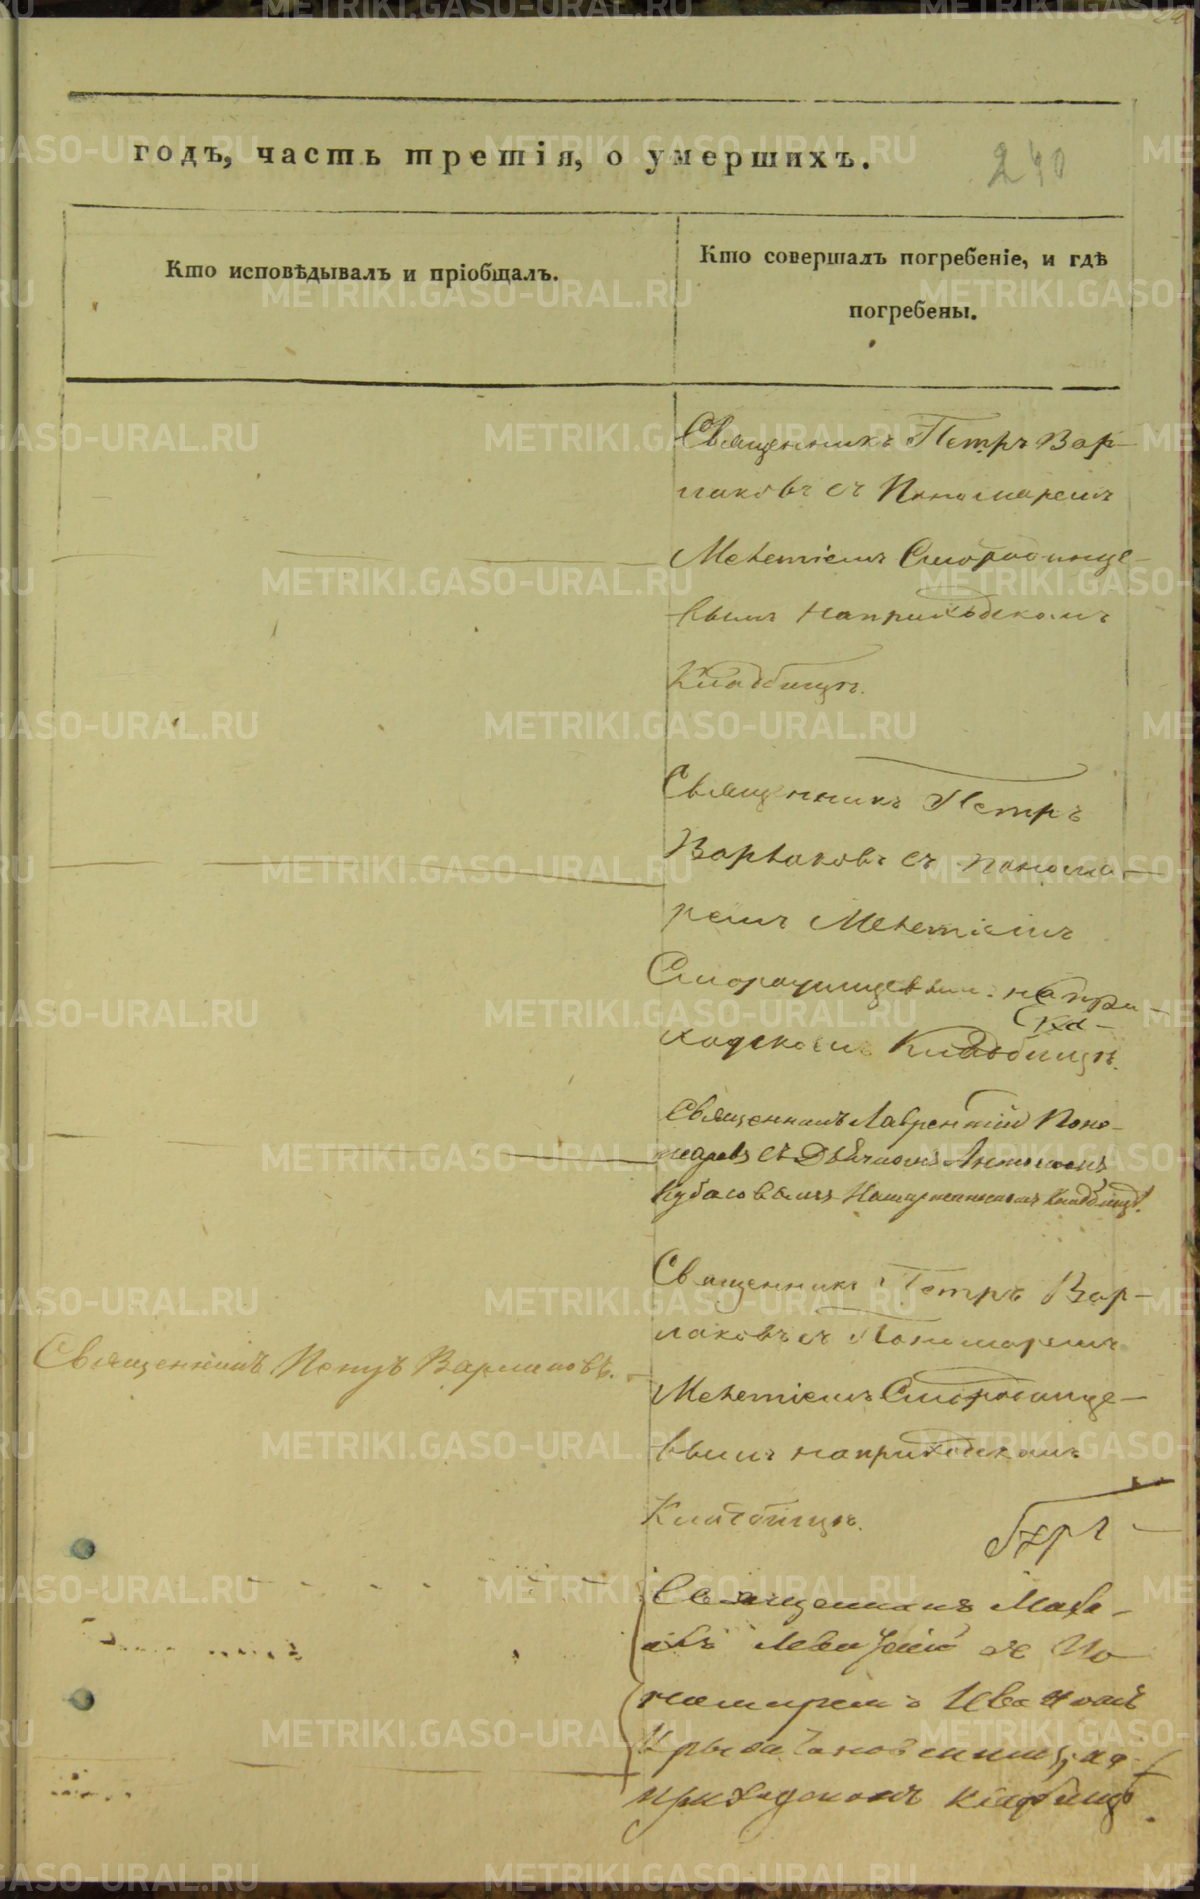 годъ, часть третія, о умершихъ.
240
Кто исповѣдывалъ и пріобщалъ.
Кто совершалъ погребеніе, и гдѣ
погребены.
Священникъ Петръ Вар-
лаковъ съ Пономаремъ
Мелетіемъ Смородинце-
вымъ на приходскомъ
Кладбищѣ.
Священникъ Петръ
Варлаковъ съ понома-
ремъ Мелетіемъ
Смородинцевым. на при-
ходскомъ Кладбищѣ.
Священникъ Лаврентій Поно-
маревъ съ Дьячкомъ Антономъ
Кубасовымъ На Кладбищѣ.
Священникъ Петръ Вар-
лаковъ съ Пономаремъ
Священникъ Петръ Варлаковъ.
Мелетіемъ Смородинце-
вымъ на приходскомъ
Кладбищѣ.
Священникъ
Левицкій съ По-
номаремъ Иваномъ
на
приходскомъ кладбищѣ.
METRIKI.GASO-URAL.RU